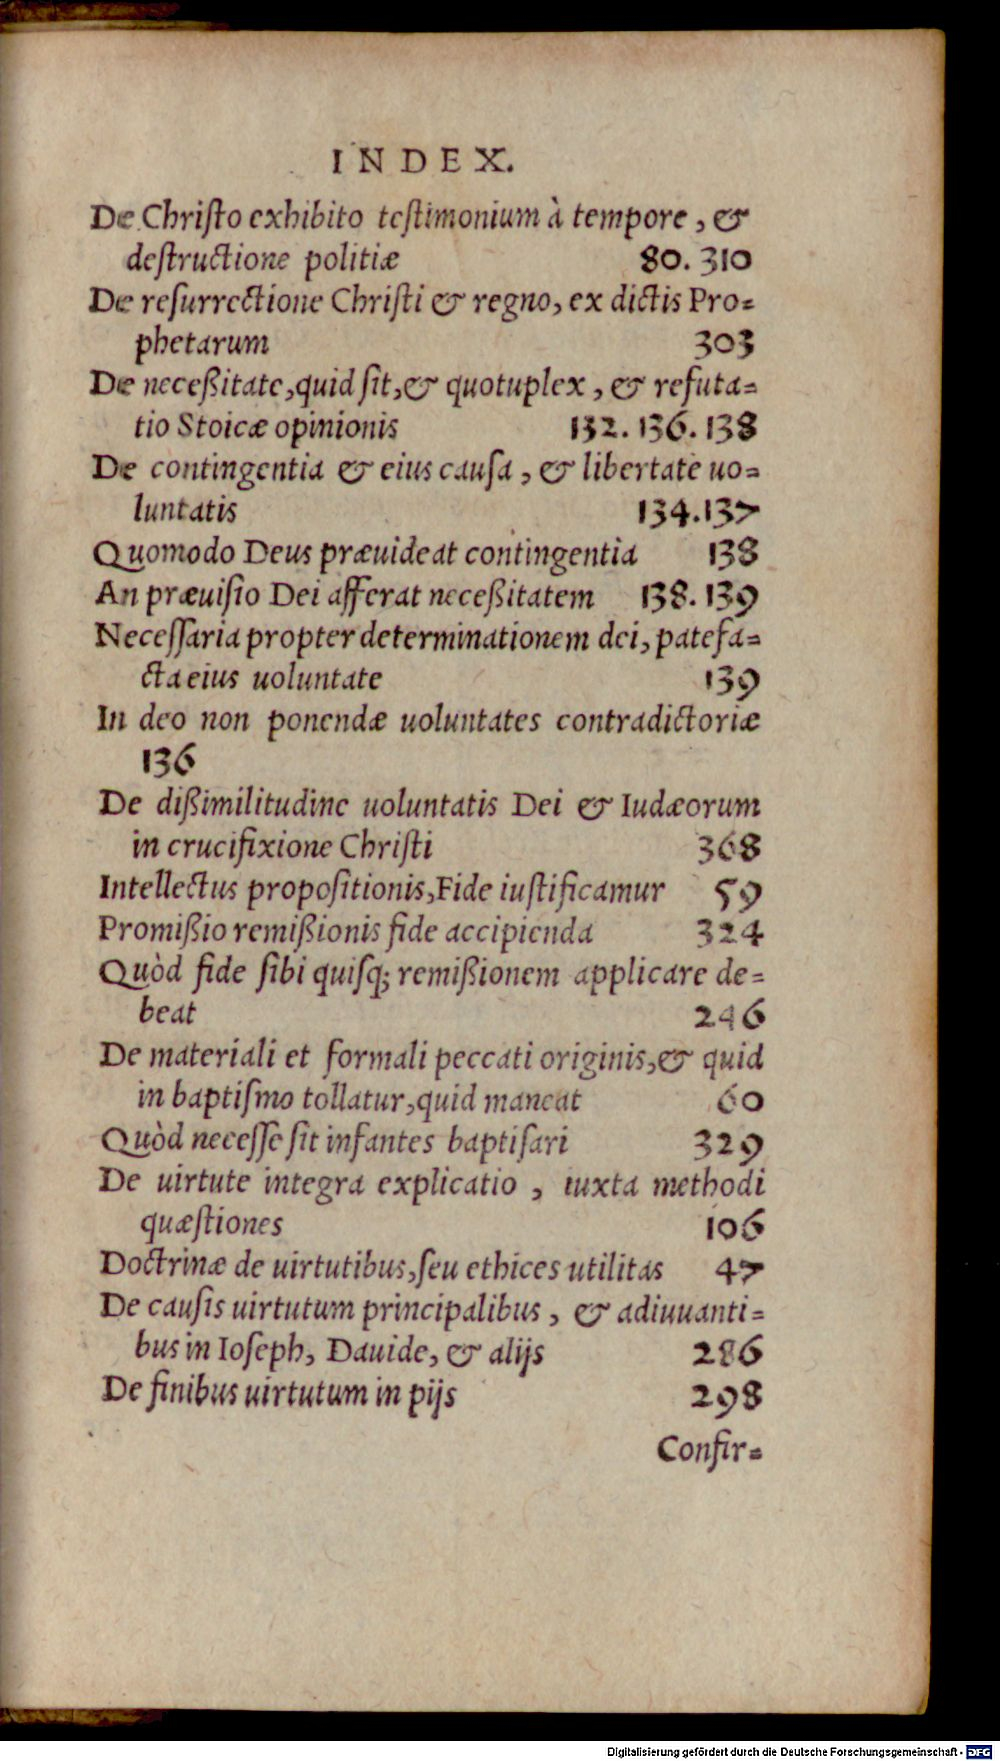 INDEX.
De Chriſto exhibito teſtimonium à tempore, &
deſtructione politiæ 80. 310
De reſurrectione Chriſti & regno, ex dictis Pro=
phetarum 303
De neceßitate, quid ſit, & quotuplex, & refuta=
tio Stoicæ opinionis 132. 136. 138
De contingentia & eius cauſa, & libertate uo=
luntatis 134. 137
Quomodo Deus præuideat contingentia 138
An præuiſio Dei afferat neceßitatem 138. 139
Neceſſaria propter determinationem dei, patefa=
cta eius uoluntate 139
In deo non ponendæ uoluntates contradictoriæ
136
De dißimilitudine uoluntatis Dei & Iudæorum
in crucifixione Chriſti 368
Intellectus propoſitionis, Fide iuſtificamur 59
Promißio remißionis fide accipienda 324
Quòd fide ſibi quiſq; remißionem applicare de=
beat 246
De materiali et formali peccati originis, & quid
in baptiſmo tollatur, quid maneat 60
Quòd neceſſe ſit infantes baptiſari 329
De uirtute integra explicatio, iuxta methodi
quæſtiones 106
Doctrinæ de uirtutibus, ſeu ethices utilitas 47
De cauſis uirtutum principalibus, & adiuuanti=
bus in Ioſeph, Dauide, & alijs 286
De finibus uirtutum in pijs 298
Confir=
Digitalisierung gefördert durch die Deutsche Forschungsgemeinschaft - DFG